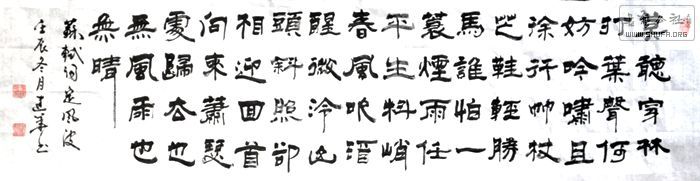 莫聽穿林
打葉聲何
妨吟嘯且
徐行竹杖
芒鞋輕勝
馬誰怕一
蓑煙雨任
平生料峭
春風吹酒
醒微冷山
頭斜照卻
相迎回首
向來蕭瑟
處歸去也
無風雨也
無晴
蘇軾詞定風波
壬辰冬月建書
WWW.SHUFA.ORG